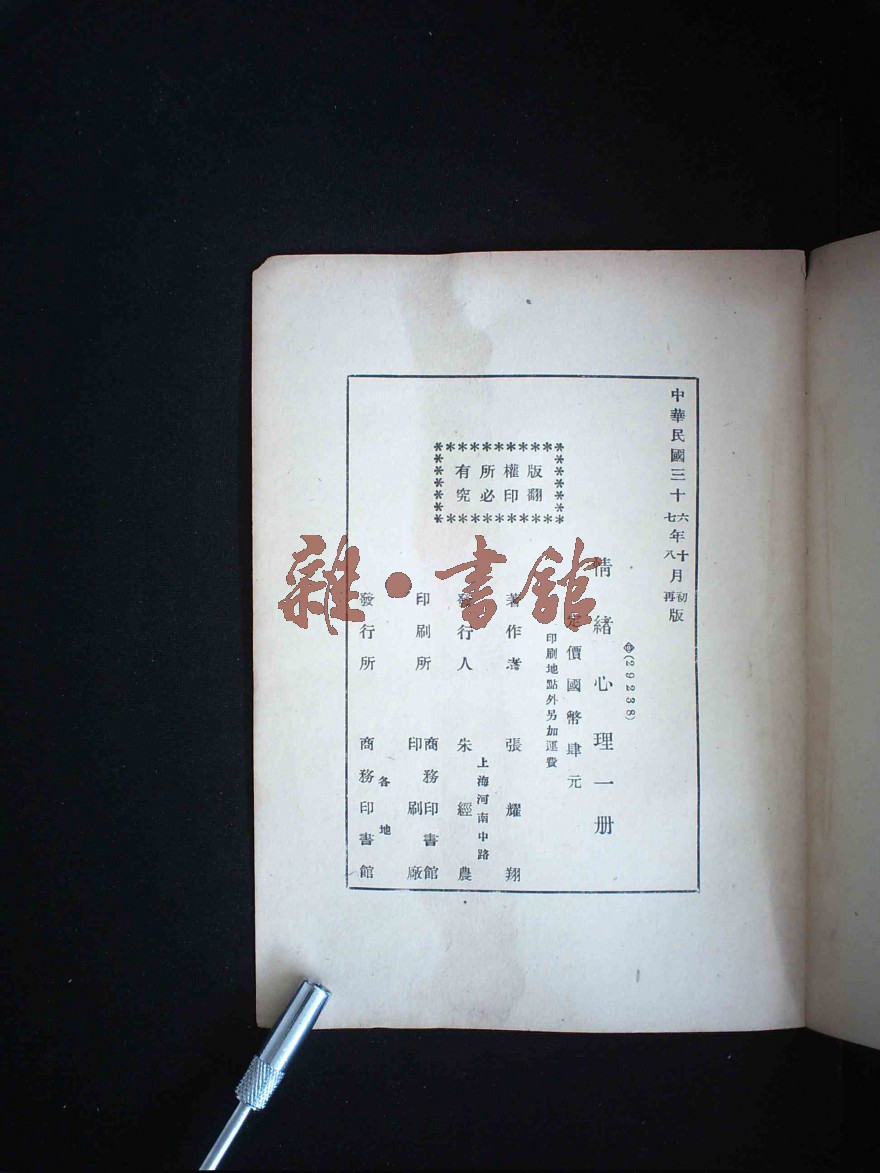 中華民國三十六年十月初版
七八再
(29238)
情緒心理一册
定價國幣肆元
印刷地點外另加運費
版權所有
翻印必究
著作者 張耀翔
上海河南中路
發行人 朱經農
印刷所 商務印書館
印刷廠
各地
發行所 商務印書館
雜·書館